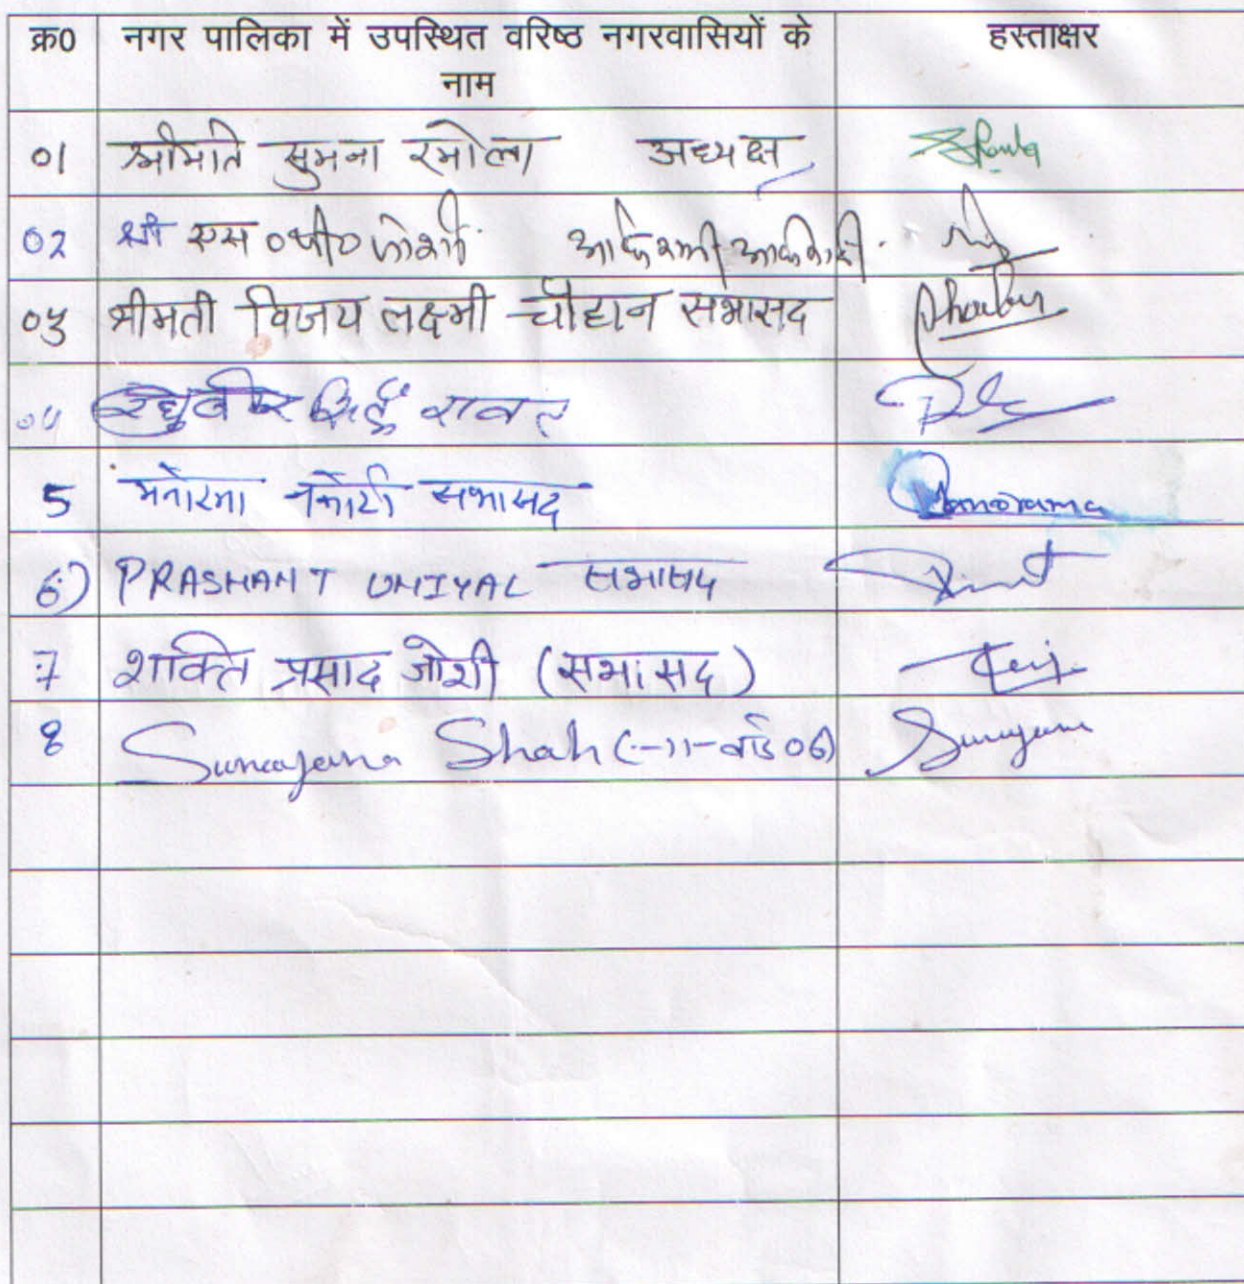 क्र0 नगर पालिका में उपस्थित वरिष्ठ नगरवासियों के हस्ताक्षर
नाम
01 श्रीमति सुमना रमोला अध्यक्ष
02 श्री एस०पी० जोशी
03 श्रीमती विजय लक्ष्मी चौहान सभासद
04 रघुबीर सिंह रावत
5 मनोरमा सभासद Manorama
6) PRASHANT UNIYAL सभासद
7 शक्ति प्रसाद जोशी (सभासद)
8 Sunayana Shah (-11-वार्ड 06) Sunayana